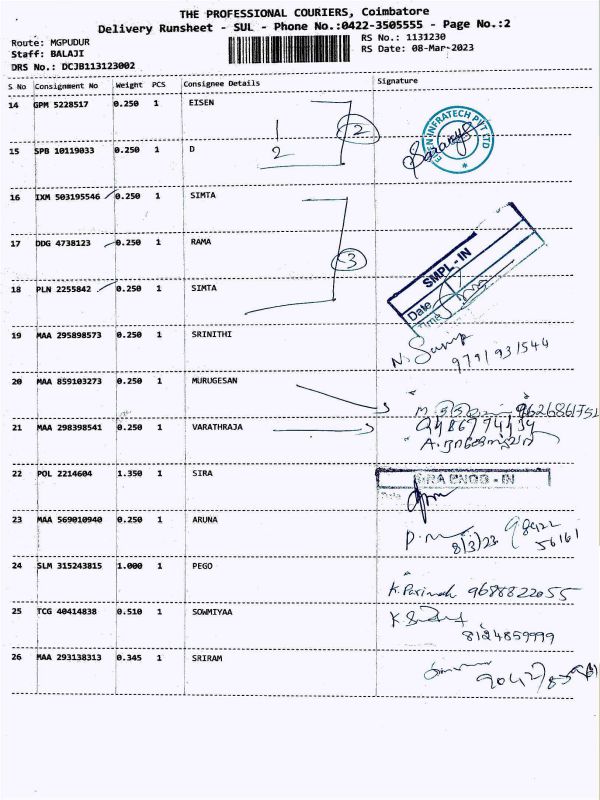 THE PROFESSIONAL COURIERS, Coimbatore
Delivery Runsheet - SUL - Phone No.:0422-3505555 - Page No.:2
Route: MGPUDUR
Staff: BALAJI
DRS No.: DCJB113123002
RS No.: 1131230
RS Date: 08-Mar-2023
S No Consignment No Weight PCS Consignee Details Signature
14 GPM 5228517 0.250 1 EISEN
1
2
2
15 SPB 10119033 0.250 1 D
EISEN INFRATECH PVT LTD
16 IXM 503195546 0.250 1 SIMTA
17 DDG 4738123 0.250 1 RAMA
3
SMPL - IN
Date
Time
18 PLN 2255842 0.250 1 SIMTA
19 MAA 295898573 0.250 1 SRINITHI
9791931544
20 MAA 859103273 0.250 1 MURUGESAN
9626861751
21 MAA 298398541 0.250 1 VARATHRAJA
22 POL 2214604 1.350 1 SIRA
Date
23 MAA 569010940 0.250 1 ARUNA
8/3/23 98422
56161
24 SLM 315243815 1.000 1 PEGO
9688822055
25 TCG 40414838 0.510 1 SOWMIYAA
8124859999
26 MAA 293138313 0.345 1 SRIRAM